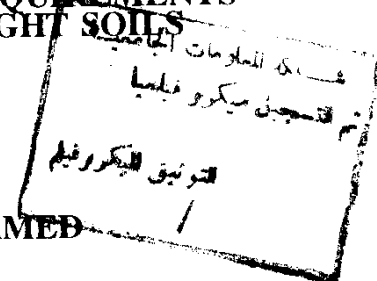 QUIREMENTS
GHT SOILS
شبكة المعلومات الجامعية
تم التسجيل ميكروفيلميا
التوثيق الميكروفيلم
AMED